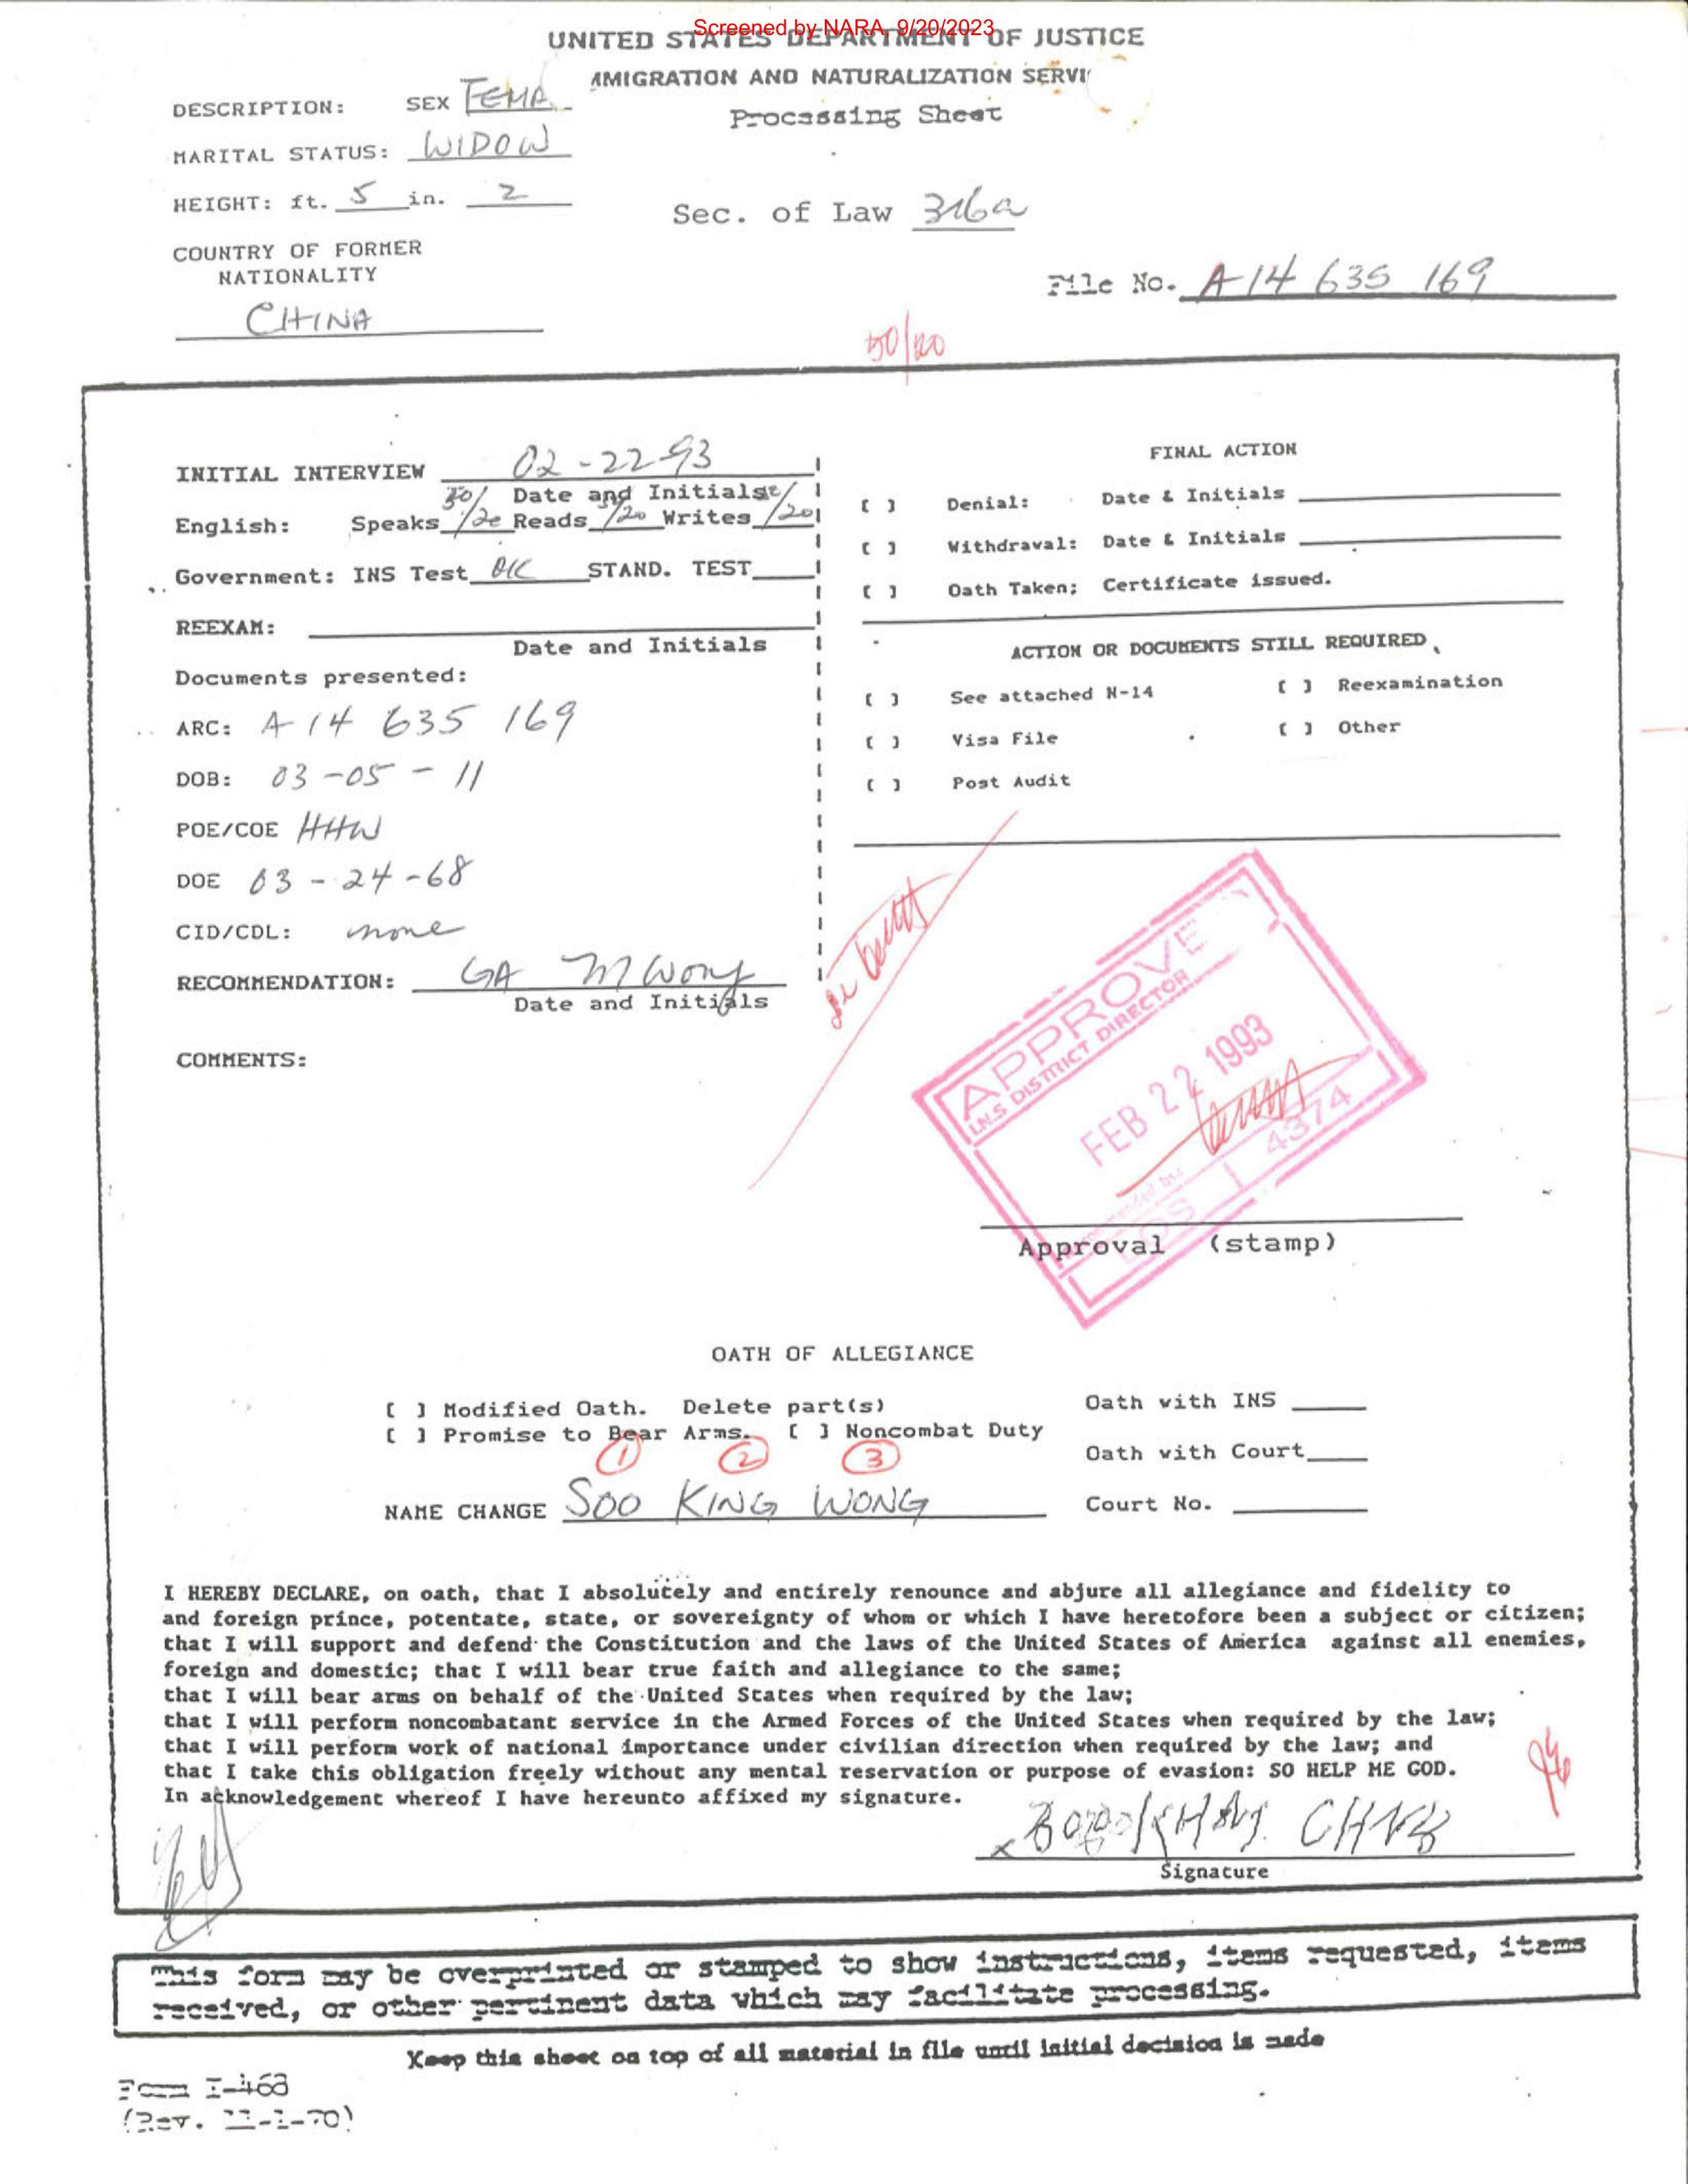 Screened by NARA, 9/20/2023
UNITED STATES DEPARTMENT OF JUSTICE
MMIGRATION AND NATURALIZATION SERVI
Processing Sheet
DESCRIPTION: SEX FEMA
MARITAL STATUS: WIDOW
HEIGHT: ft. 5 in. 2
Sec. of Law 316a
COUNTRY OF FORMER
NATIONALITY
CHINA
File No. A-14 635 169
50/20
INITIAL INTERVIEW 02-22-93
Date and Initials
English: Speaks 50/20 Reads /20 Writes /20
Government: INS Test OK STAND. TEST
REEXAM:
Date and Initials
Documents presented:
ARC: A-14 635 169
DOB: 03-05-11
POE/COE HHW
DOE 03-24-68
CID/CDL: none
RECOMMENDATION: GA M Wong
Date and Initials
COMMENTS:
FINAL ACTION
[ ] Denial: Date & Initials
[ ] Withdraval: Date & Initials
[ ] Oath Taken; Certificate issued.
ACTION OR DOCUMENTS STILL REQUIRED
[ ] See attached N-14 [ ] Reexamination
[ ] Visa File [ ] Other
[ ] Post Audit
APPROVE
I.N.S DISTRICT DIRECTOR
FEB 22 1993
Recommended by:
LOS 4374
Approval (stamp)
OATH OF ALLEGIANCE
[ ] Modified Oath. Delete part(s) Oath with INS
[ ] Promise to Bear Arms. [ ] Noncombat Duty
1 2 3
Oath with Court
NAME CHANGE SOO KING WONG Court No.
I HEREBY DECLARE, on oath, that I absolutely and entirely renounce and abjure all allegiance and fidelity to
and foreign prince, potentate, state, or sovereignty of whom or which I have heretofore been a subject or citizen;
that I will support and defend the Constitution and the laws of the United States of America against all enemies,
foreign and domestic; that I will bear true faith and allegiance to the same;
that I will bear arms on behalf of the United States when required by the law;
that I will perform noncombatant service in the Armed Forces of the United States when required by the law;
that I will perform work of national importance under civilian direction when required by the law; and
that I take this obligation freely without any mental reservation or purpose of evasion: SO HELP ME GOD.
In acknowledgement whereof I have hereunto affixed my signature.
Signature
This form may be overprinted or stamped to show instructions, items requested, items
received, or other pertinent data which may facilitate processing.
Keep this sheet on top of all material in file until initial decision is made
Form I-468
(Rev. 11-1-70)